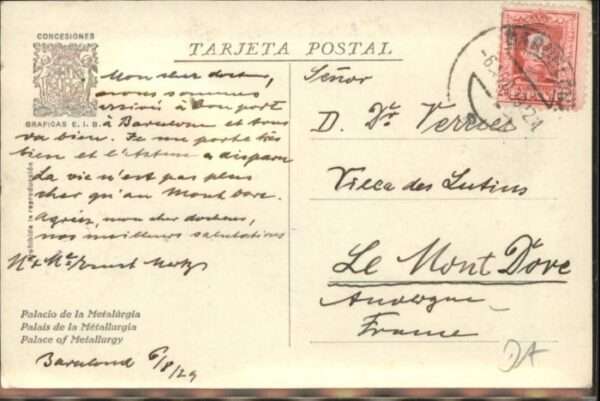 CONCESIONES
GRAFICAS E. I. B.
Prohibida la reproducción
TARJETA POSTAL
Mon cher docteur,
nous sommes
arrivé à bon port
à Barcelone et tous
va bien. Je me porte très
bien et l'Asthme a disparu
La vie n'est pas plus
cher qu'au Mont Dore.
Agréez, mon cher docteur,
nos meilleurs salutations
Mr & Me Ernest
Palacio de la Metalúrgia
Palais de la Métallurgia
Palace of Metallurgy
Barcelond 6/8/29
Señor
D. Dr.
Villa des Lutins
Le Mont Dore
France
DA